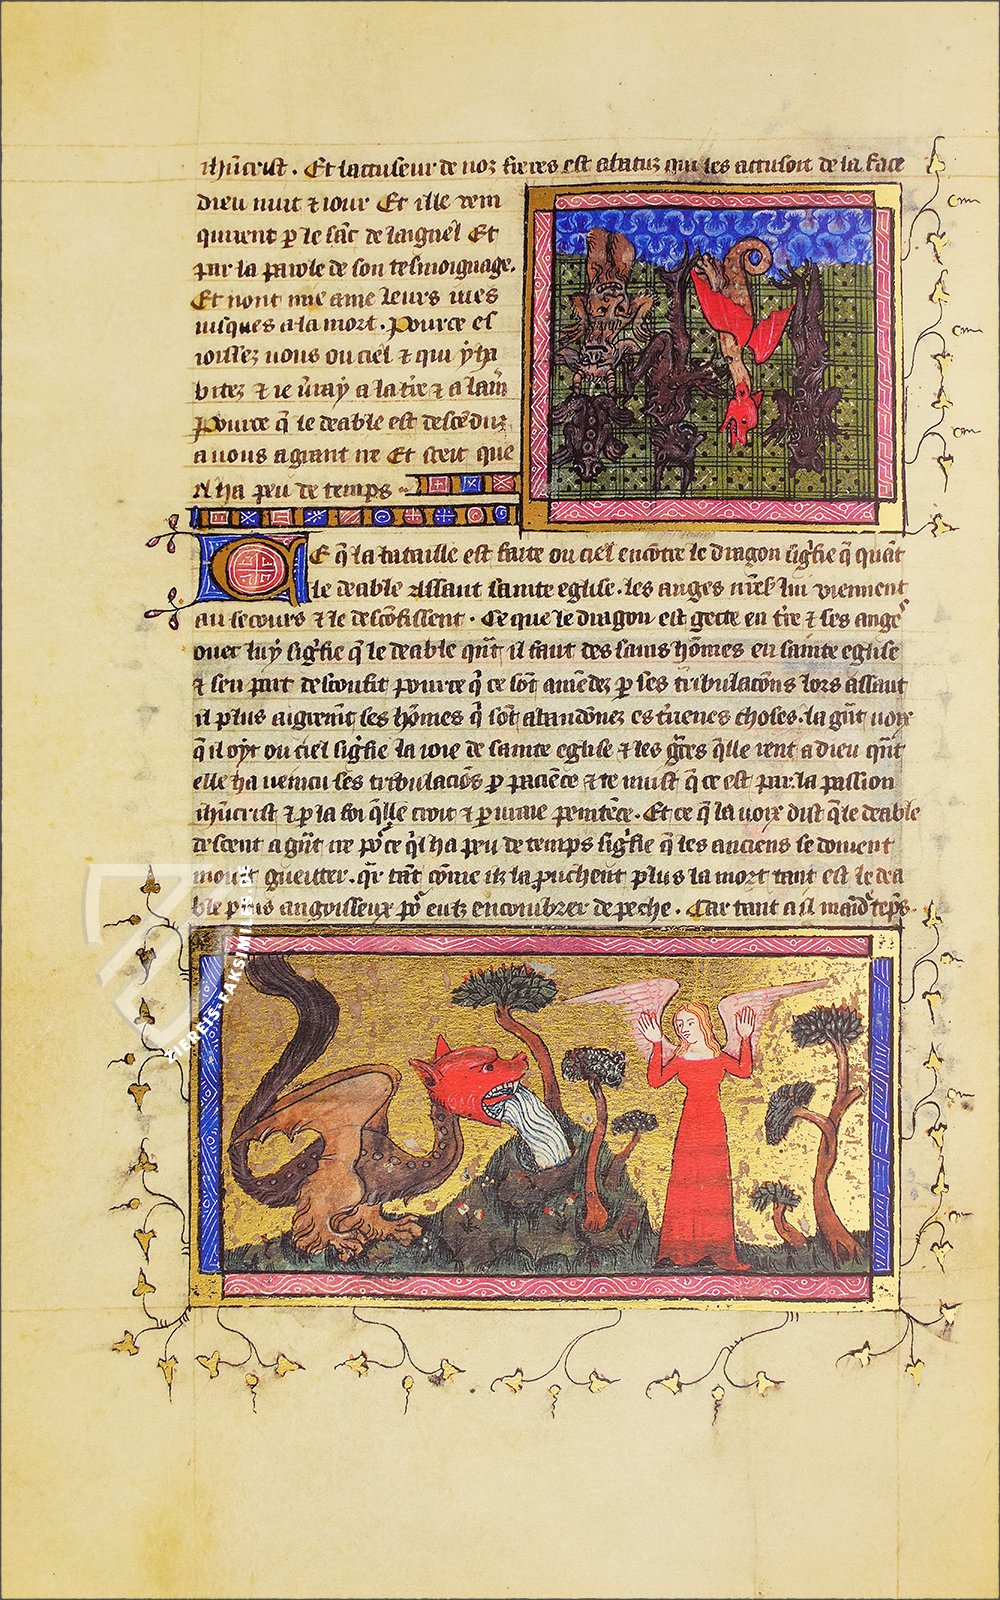 ihūcrist . Et lacuseur de noz freres est abatuz qui les accusoit de la face
dieu nuit ⁊ iour Et ille vein
quirent p le sāc de laignel Et
par la parole de son tesmoignage.
Et nont mie ame leurs vies
iusques a la mort . Pource es
ioissez vous ou ciel ⁊ qui y ha
bitez ⁊ ie
a la t're ⁊ a la
Pource q̄ le deable est descēduz
a vous a grant ire Et sceit que
il ha peu de temps
CE q̄ la bataille est faite ou ciel encōtre le dragon sig'fie q̄ quāt
le deable assaut sainte eglise . les anges n're lui viennent
au secours ⁊ le descōfissent . Ce que le dragon est gecte en t're ⁊ ses ange'
ouec luy sig'fie q̄ le deable qūt il faut des sains hōmes en sainte eglise
⁊ sen part desconfit pource q̄ ce sōt amēdez p ses tribulacōns lors assaut
il plus aigremt ses hōmes q̄ sōt abandōnez es t'rienes choses . la gūt voix
q̄ il oyt ou ciel sig'fie la ioie de sainte eglise ⁊ les grces q̄lle rent a dieu qūt
elle ha veincu ses tribulaciōs p paciēce ⁊ ce nuist q̄ ce est par la passion
ihūcrist ⁊ p la foi q̄lle croit ⁊ p vraie penitēce . Et ce q̄ la voix dist q̄ le deable
descent a gūt ire po'ce q̄l ha peu de temps sig'fie q̄ les anciens se doiuent
moult gueitter . q̄r tāt cōme ilz la p̄uchent plus la mort tant est le dea
ble plus angoisseux po' eulx encombrer de peche . Car tant a il maīd' tēps .
ZIEREIS-FAKSIMILE.DE